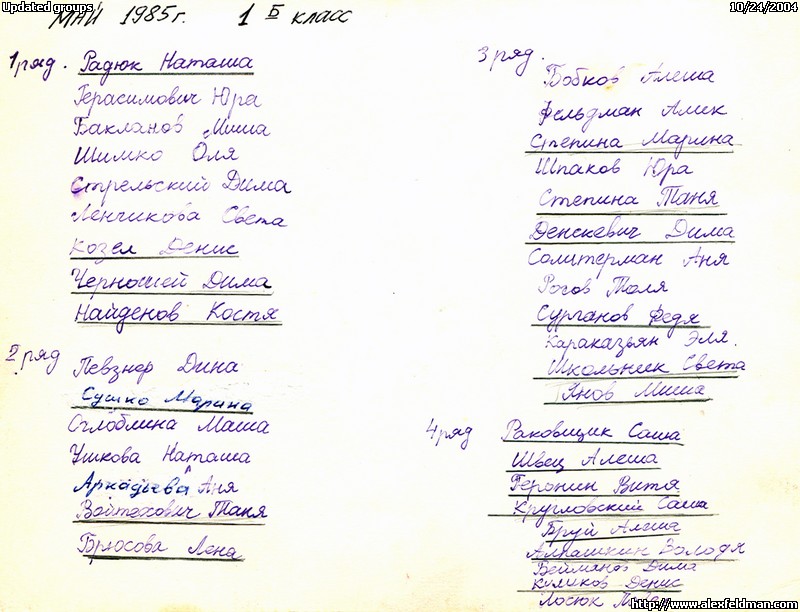 Updated groups
10/24/2004
МАЙ 1985г. 1 Б класс
1 ряд. Радюк Наташа
Герасимович Юра
Бакланов Миша
Шимко Оля
Стрельский Дима
Ленчикова Света
Козел Денис
Черношей Дима
Найденов Костя
2 ряд Певзнер Дина
Сушко Марина
Оглоблина Маша
Ушкова Наташа
Аркадьева Аня
Войтехович Таня
Брюсова Лена
3 ряд. Бобков Алеша
Фельдман Алик
Степина Марина
Шпаков Юра
Степина Таня
Денскевич Дима
Солитерман Аня
Рогов Толя
Сурганов Федя
Караказьян Эля.
Школьник Света
Янов Миша
4 ряд Раковщик Саша
Швец Алеша
Геронин Витя
Кругловский Саша
Бруй Алеша
Алпашкин Володя
Вейманов Дима
Куликов Денис
Лостюк
http://www.alexfeldman.com